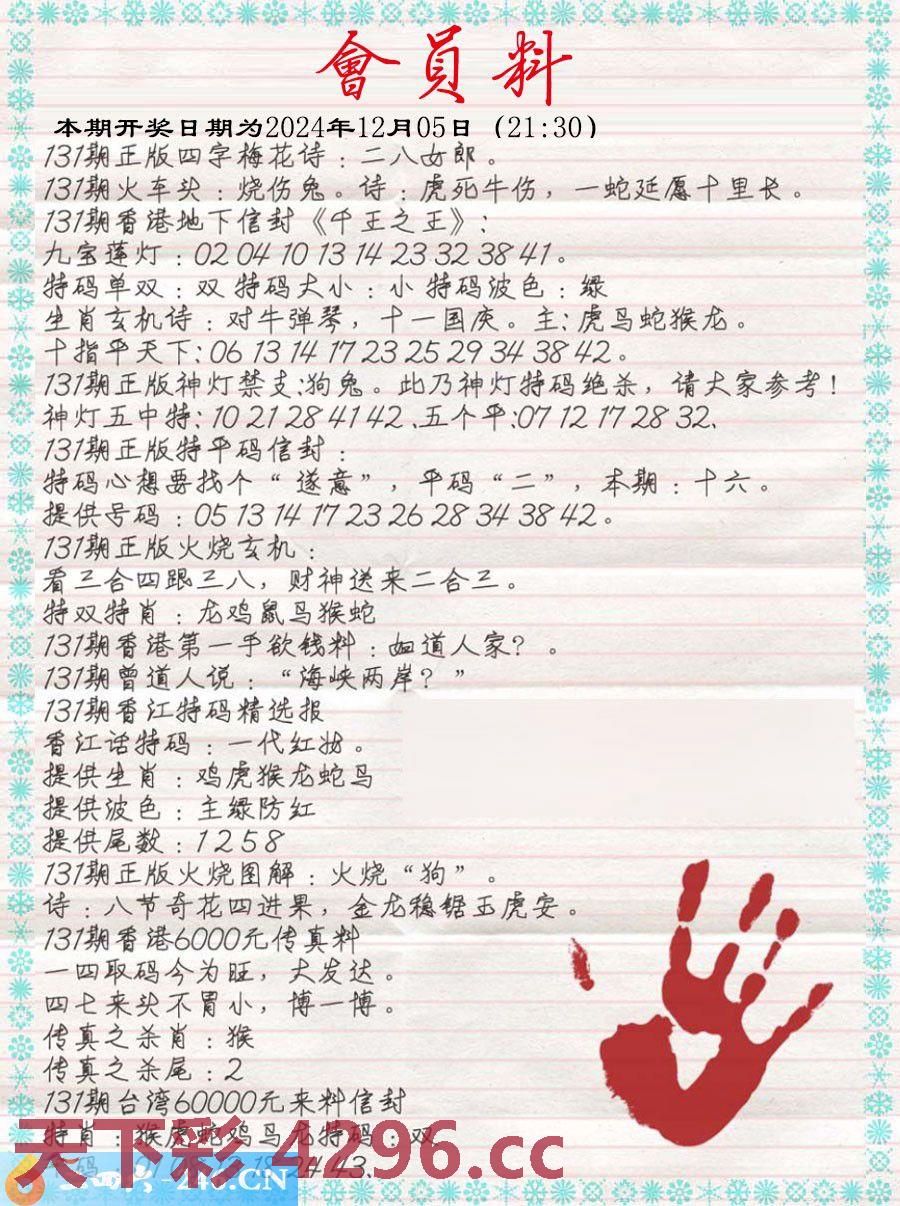 會員料
本期开奖日期为2024年12月05日 (21:30)
131期正版四字梅花诗：二八女郎。
131期火车头：烧伤兔。诗：虎死牛伤，一蛇延愿十里长。
131期香港地下信封《千王之王》：
九宝莲灯：02 04 10 13 14 23 32 38 41。
特码单双：双 特码大小：小 特码波色：绿
生肖玄机诗：对牛弹琴，十一国庆。主：虎马蛇猴龙。
十指平天下：06 13 14 17 23 25 29 34 38 42。
131期正版神灯禁支：狗兔。此乃神灯特码绝杀，请大家参考！
神灯五中特：10 21 28 41 42、五个平：07 12 17 28 32、
131期正版特平码信封：
特码心想要找个“遂意”，平码“二”，本期：十六。
提供号码：05 13 14 17 23 26 28 34 38 42。
131期正版火烧玄机：
看三合四跟三八，财神送来二合三。
特双特肖：龙鸡鼠马猴蛇
131期香港第一手欲钱料：如道人家？。
131期曾道人说：“海峡两岸？”
131期香江特码精选报
香江话特码：一代红妆。
提供生肖：鸡虎猴龙蛇马
提供波色：主绿防红
提供尾数：1 2 5 8
131期正版火烧图解：火烧“狗”。
诗：八节奇花四进果，金龙稳锯玉虎安。
131期香港6000元传真料
一四取码今为旺，大发达。
四七来头不冒小，博一博。
传真之杀肖：猴
传真之杀尾：2
131期台湾60000元来料信封
特肖：猴虎蛇鸡马龙特码：双
天下彩 4296.cc
43、
-246.CN